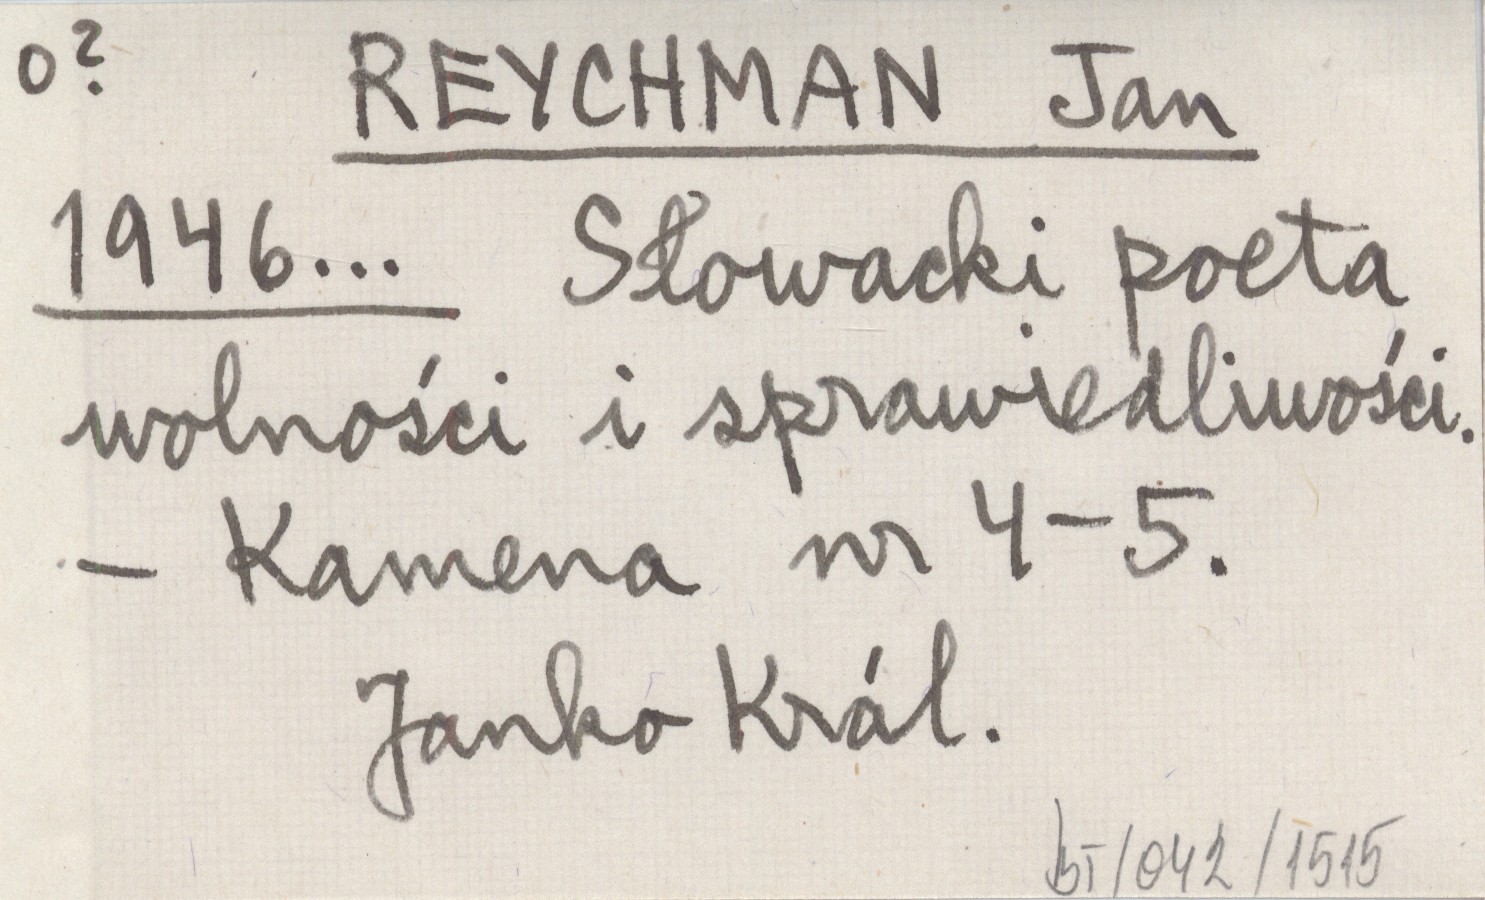 o?
REYCHMAN Jan
1946... Słowacki poeta
wolności i sprawiedliwości.
- Kamena nr 4-5.
Janko Král.
/042/1515